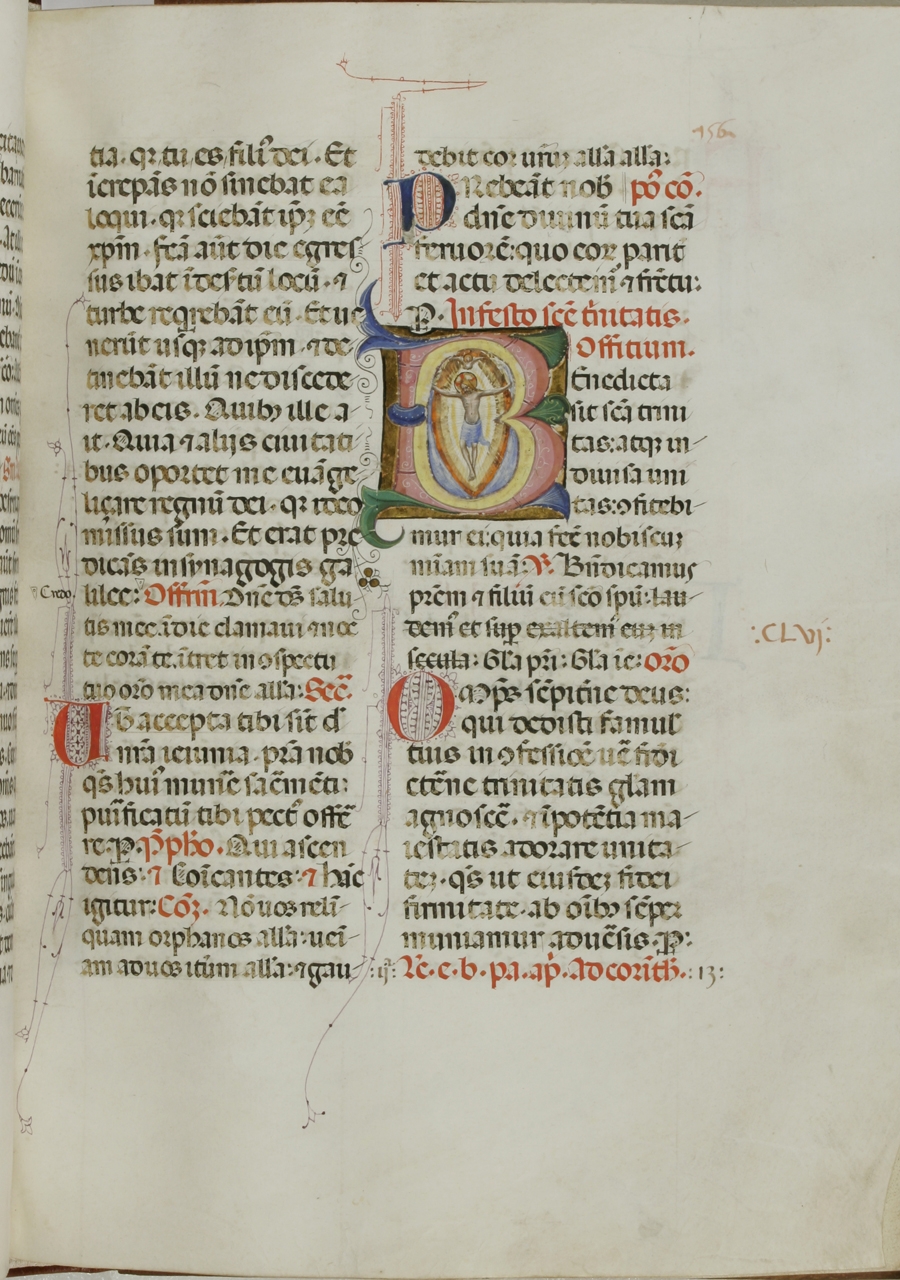 156
tia. qr tu es filiꝰ dei. Et
īcrepās nō sinebat ea
loqui. qr sciebāt ip̄ȝ eē
xp̄m. fcā aūt die egres
sus ibat ī deſtū locū. ⁊
turbe reqrebāt eū. Et ue
nerūt usqȝ ad ip̄m. ⁊ de-
tinebāt illū ne discede-
ret ab eis. Quibȝ ille a-
it. Quia ⁊ alijs ciuitati-
bus oportet me euāge-
liçare regnū dei. qr iō co
missus sum. Et erat pre-
dicās in synagogis ga-
Credo
lilee: Offrm̄. Dn̄e ds̄ salu-
tis mee: ī die clamaui ⁊ noc
te corā te. ītret in ꝯspectu
tuo orō mea dn̄e alla: Sec̄.
Ab accepta tibi sīt d
n̄ra ieiunia. p̄ra nob
q̄s huiꝰ munīē sac̄mēti:
puīficatū tibi pectꝰ offer̄
re. P. p̄pho. Qui ascen
dens: ⁊ Coīcantes: ⁊ hāc
igitur: Cōȝ. Nō uos reli-
quam orphanos alla: ueī-
am ad uos itūm alla: ⁊ gau-
debit cor ur̄m alla alla:
Prebeāt nob pō cō.
dn̄e diuinū tua scā
feruorē: quo eorꝫ parit
et actu delectem̄ ⁊ fr̄ctu:
P. In festo scē tīnitatis.
Offitium.
Benedicta
sit scā trini
tas: atqȝ in-
diuisa uni
tas: ꝯfitebi-
mur ei: quia fec̄ nobiscuȝ
mīam suā: R̄. Bn̄dicamus
prēm ⁊ filiū cū sco spū: lau-
dem̄ et sup exaltem̄ eūȝ in
secula: Gla pri: Gla ie: orō
:CLVJ:
Omps̄ sēpitn̄e deus:
qui dedisti famul
tuis in ꝯfessiōe uē fidi
etēne trinitatis glam
agnoscē. ⁊ ī potētia ma-
iestatis adorare unita-
teȝ. q̄s ut eiusdeȝ fidei
firmitate. ab oībȝ sēper
muniamur aduēsis. P:
:ij: L̄c. e. b. pa. ap̄. ad corīth. : 13 :